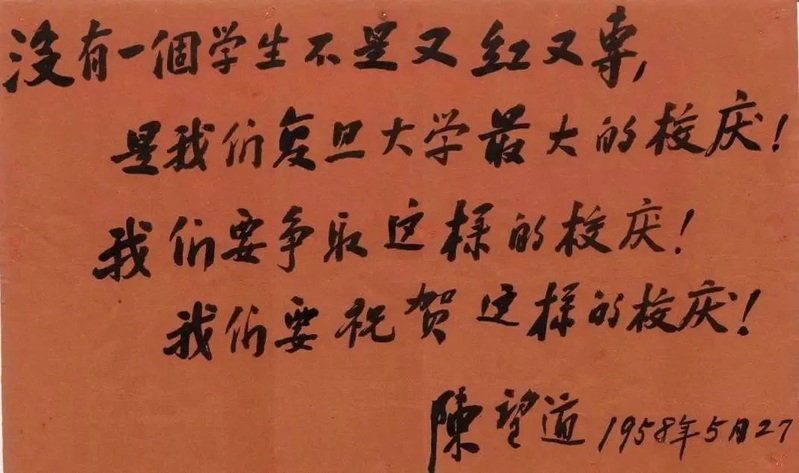 沒有一個学生不是又红又専,
是我们复旦大学最大的校庆!
我们要争取这样的校庆!
我们要祝贺这样的校庆!
陳望道 1958年5月27